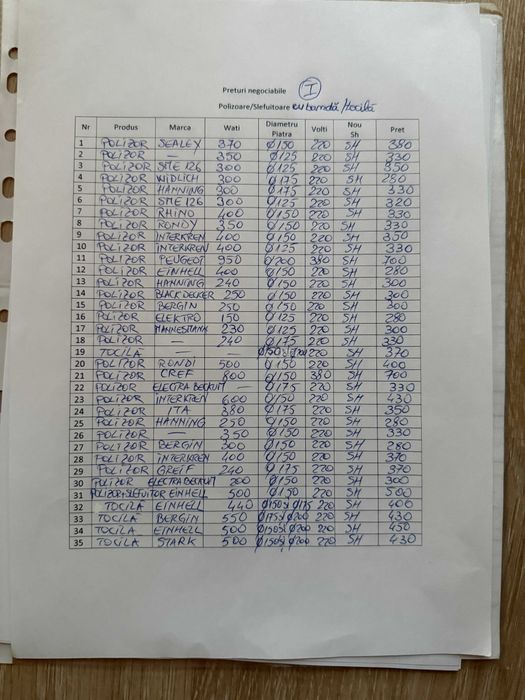 Preturi negociabile I
Polizoare/Slefuitoare cu bandă/tocilă
Nr Produs Marca Wati Diametru Piatra Volti Nou Sh Pret
1 POLIZOR SEALEY 370 Ø150 220 SH 380
2 POLIZOR — 350 Ø125 220 SH 330
3 POLIZOR SME 126 300 Ø125 220 SH 350
4 POLIZOR WIDLICH 300 Ø175 220 SH 280
5 POLIZOR HANNING 300 Ø175 220 SH 330
6 POLIZOR SME 126 300 Ø125 220 SH 320
7 POLIZOR RHINO 400 Ø150 220 SH 330
8 POLIZOR RONDY 350 Ø150 220 SH 330
9 POLIZOR INTERKREN 400 Ø150 220 SH 350
10 POLIZOR INTERKREN 400 Ø125 220 SH 330
11 POLIZOR PEUGEOT 950 Ø200 380 SH 700
12 POLIZOR EINHELL 400 Ø150 220 SH 280
13 POLIZOR HANNING 240 Ø150 220 SH 300
14 POLIZOR BLACK DECKER 250 Ø150 220 SH 300
15 POLIZOR BERGIN 250 Ø150 220 SH 300
16 POLIZOR ELEKTRO 150 Ø125 220 SH 280
17 POLIZOR 230 Ø125 220 SH 300
18 POLIZOR — 240 Ø175 220 SH 330
19 TOCILĂ — — Ø150 și Ø200 220 SH 370
20 POLIZOR RONDI 500 Ø150 220 SH 400
21 POLIZOR 800 Ø150 380 SH 700
22 POLIZOR ELECTRA BECKUM — Ø175 220 SH 330
23 POLIZOR INTERKREN 600 Ø150 220 SH 430
24 POLIZOR ITA 380 Ø175 220 SH 350
25 POLIZOR HANNING 250 Ø150 220 SH 280
26 POLIZOR — 350 Ø150 220 SH 330
27 POLIZOR BERGIN 300 Ø150 220 SH 280
28 POLIZOR INTERKREN 400 Ø150 220 SH 370
29 POLIZOR GREIF 240 Ø175 220 SH 370
30 POLIZOR ELECTRA BECKUM 200 Ø150 220 SH 300
31 POLIZOR+SLEFUITOR EINHELL 500 Ø150 220 SH 500
32 TOCILA EINHELL 440 Ø150 și Ø175 220 SH 400
33 TOCILA BERGIN 550 Ø175 și Ø200 220 SH 430
34 TOCILA EINHELL 500 Ø150 și Ø200 220 SH 450
35 TOCILA STARK 500 Ø150 și Ø200 220 SH 430